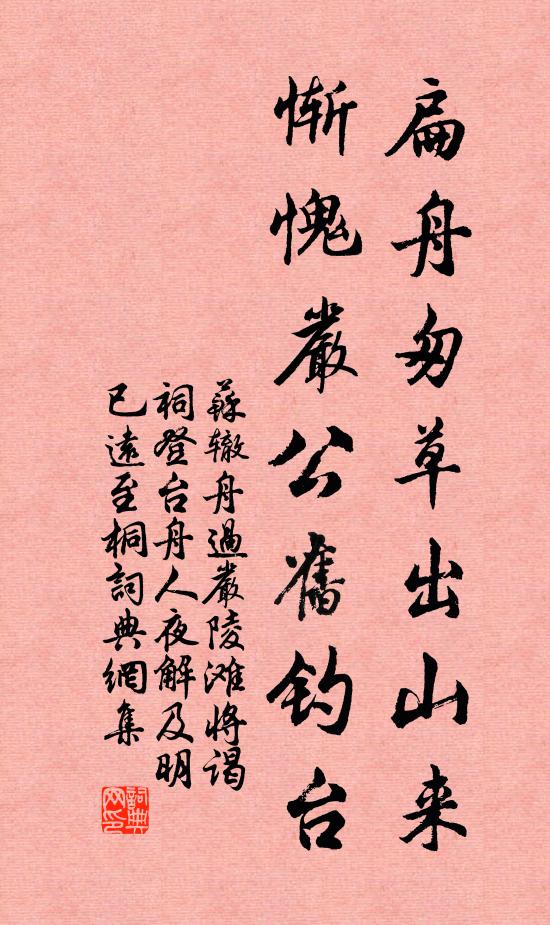 扁舟匆草出山来
惭愧嚴公舊钓台
蘇辙舟過嚴陵滩将谒
祠登台舟人夜解及明
已遠至桐詞典網集
詞典网印